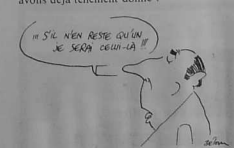 avons déjà tellement donné !
!!! S'IL N'EN RESTE QU'UN
JE SERAI CELUI-LÀ !!!